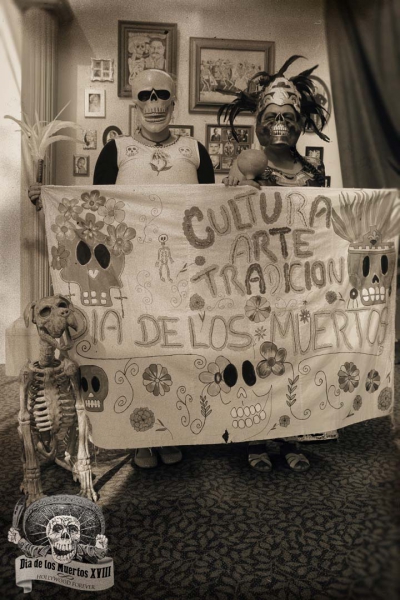 CULTURA
ARTE
TRADICION
DIA DE LOS MUERTOS
Dia de los Muertos XVIII
HOLLYWOOD FOREVER